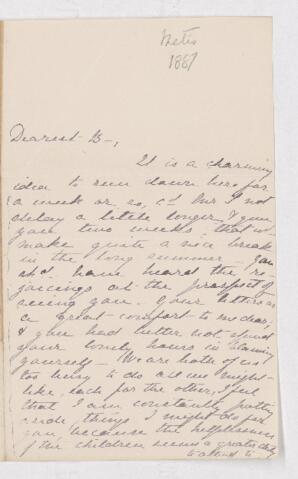 Metis
1887
Dearest B—,
It is a charming
idea to run down here for
a week or so, cd. you not
delay a little longer & give
you two weeks, that wd.
make quite a nice break
in the long summer — you
shd. have heard the re-
joicings at the prospect of
seeing you. Your letters are
a great comfort to me dear,
& you had better not spend
your lonely hours in blaming
yourself — We are both of us
too busy to do all we might
like, each for the other, I feel
that I am constantly putting
aside things I might do for
you, because the helplessness
of the children seems a greater duty
to attend to